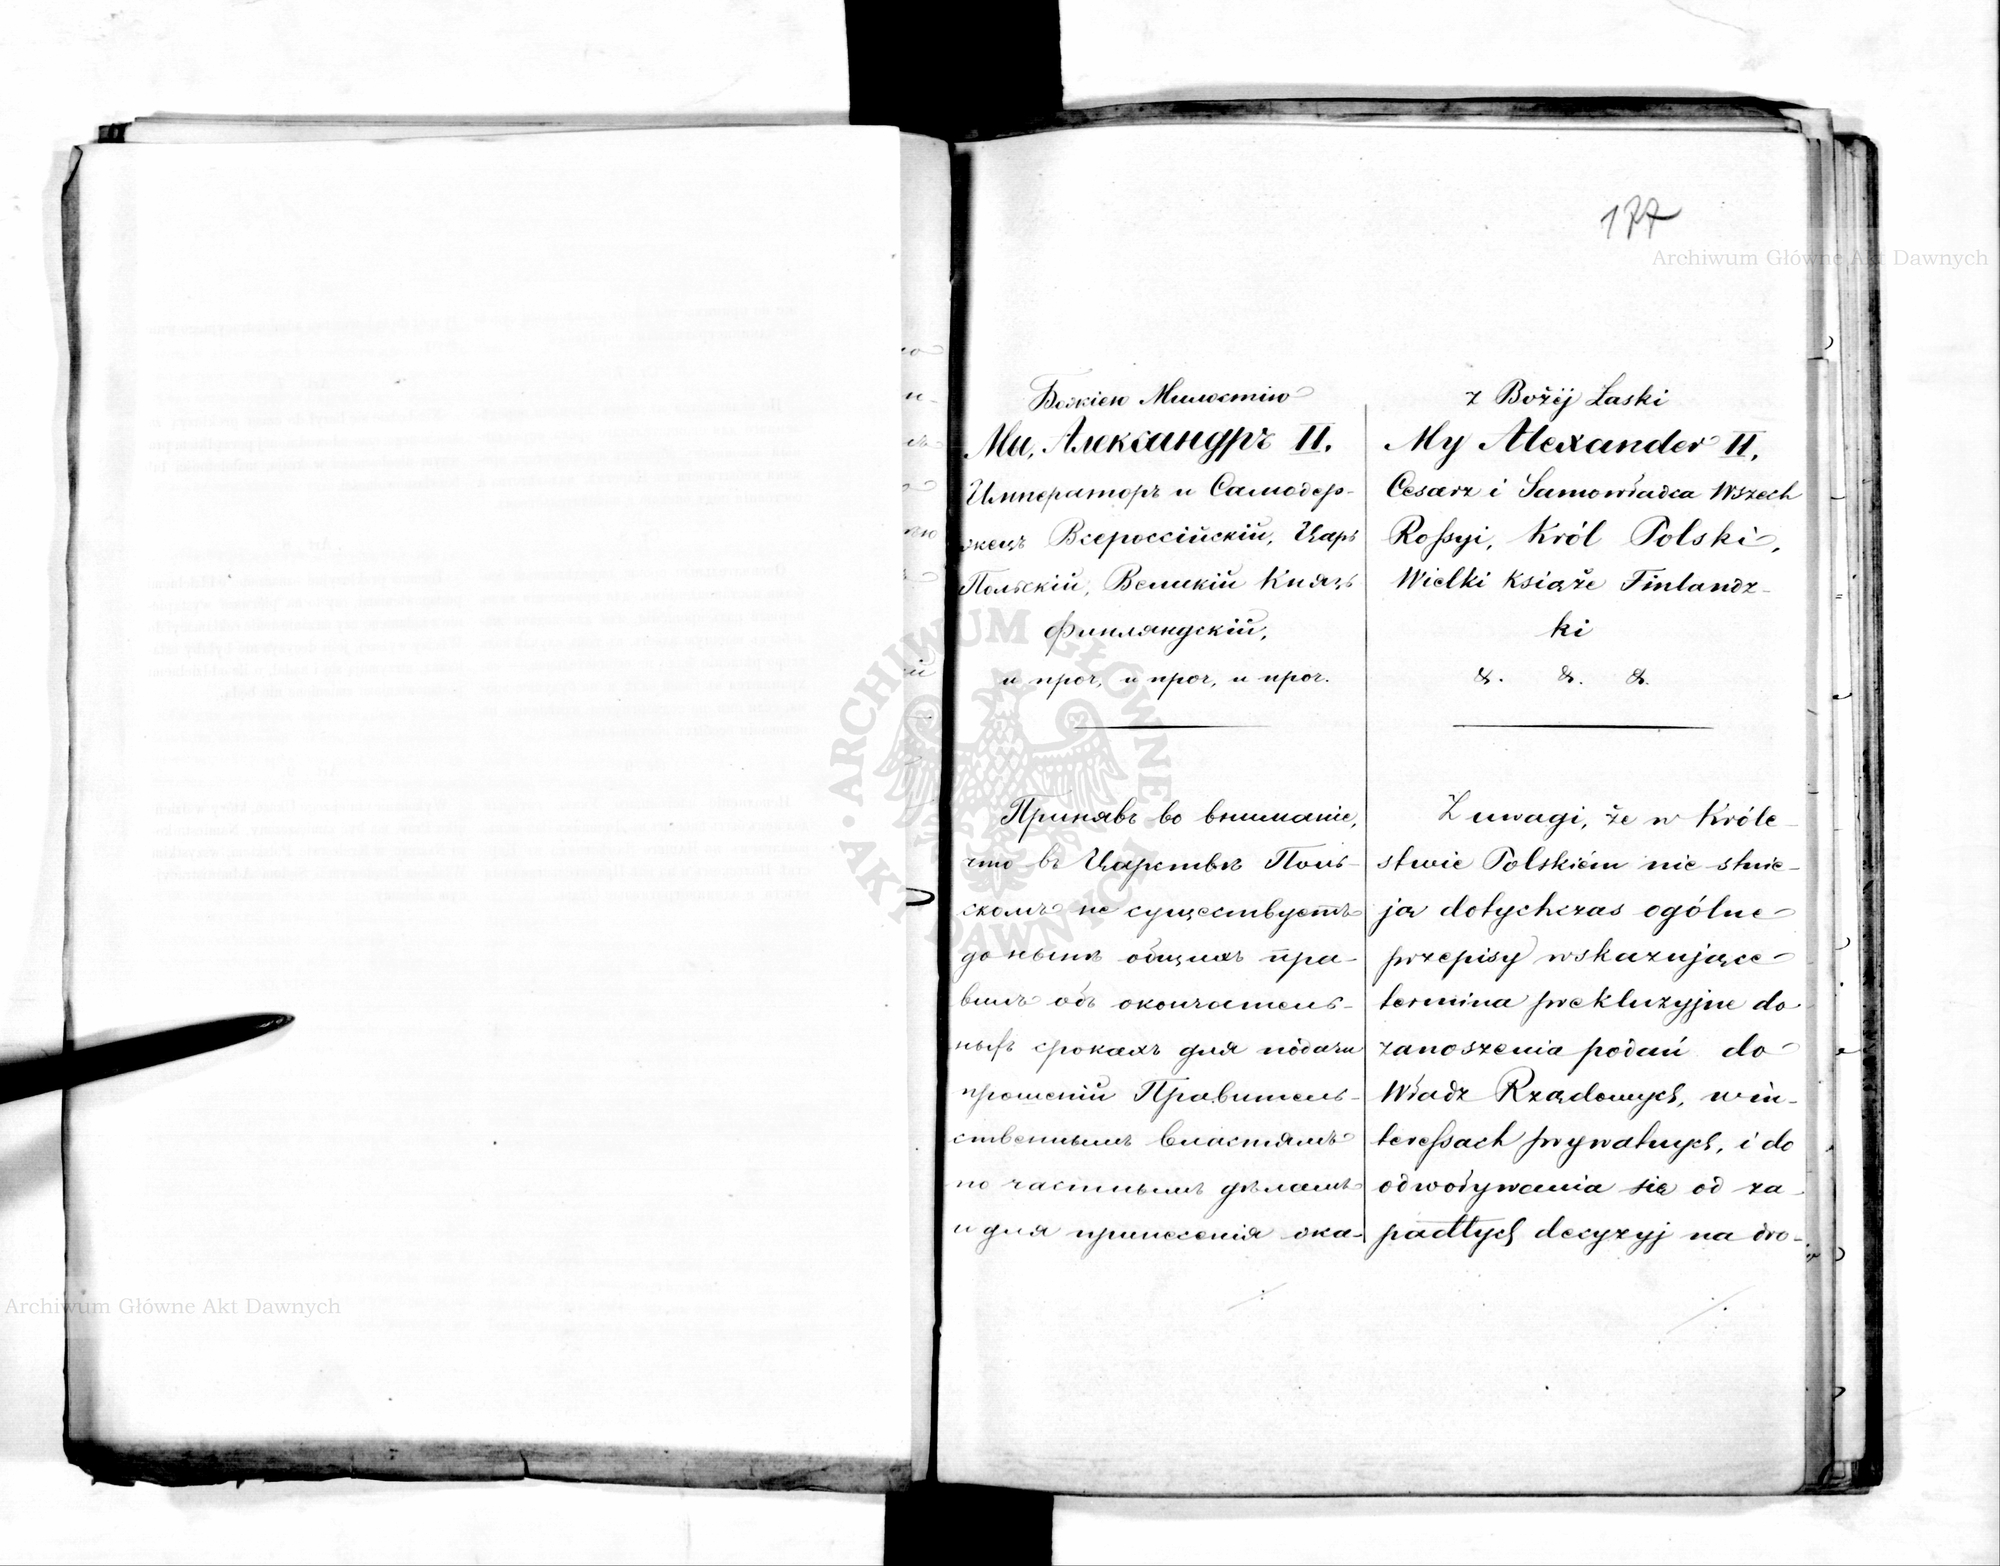 177
Archiwum Główne Akt Dawnych
Божіею Милостію
Мы, Александръ II.
Императоръ и Самодер-
жецъ Всероссійскій, Царь
Польскій, Великій Князь
Финляндскій,
и проч, и проч, и проч.
Принявъ во вниманіе,
что въ Царствѣ Поль-
скомъ не существуетъ
до нынѣ общихъ пра-
вилъ объ окончатель-
ныхъ срокахъ для подачи
прошеній Правитель-
ственнымъ Властямъ
по частнымъ дѣламъ
и для принесенія жа-
z Bożéj Łaski
My Alexander II,
Cesarz i Samowładca Wszech
Roſsyi, Król Polski,
Wielki Książe Finlandz-
ki
&. &. &.
Z uwagi, że w Króle-
stwie Polskiém nie istnie-
ją dotychczas ogólne
przepisy wskazujące
termina prekluzyjne do
zanoszenia podań do
Władz Rządowych, w in-
tereſsach prywatnych, i do
odwoływania się od za-
padłych decyzyj na dro-
ARCHIWUM GŁÓWNE AKT DAWNYCH
Archiwum Główne Akt Dawnych